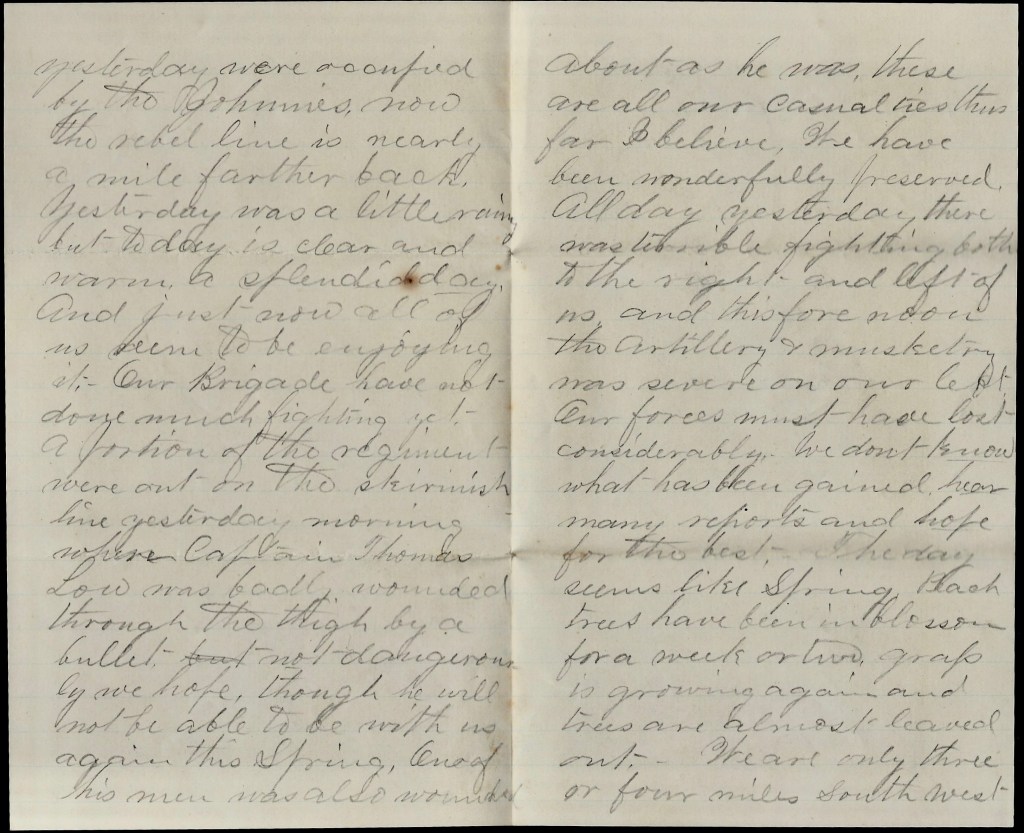 yesterday were occupied
by the Johnnies, now
the rebel line is nearly
a mile farther back.
Yesterday was a little rainy
but to day is clear and
warm, a splendid day.
And just now all of
us seem to be enjoying
it;- Our Brigade have not
done much fighting yet-
A portion of the regiment
were out on the skirmish
line yesterday morning
where Captain Thomas
Low was badly wounded
through the thigh by a
bullet, but not dangerous
ly we hope, though he will
not be able to be with us
again this Spring, One of
his men was also wounded
about as he was, these
are all our casualties thus
far I believe, We have
been wonderfully preserved.
All day yesterday there
was terrible fighting both
to the right and left of
us, and this fore noon
the artillery & musketry
was severe on our left
Our forces must have lost
considerably. We dont know
what has been gained, hear
many reports and hope
for the best,- The day
seems like Spring, Peach
trees have been in blossom
for a week or two, grass
is growing again and
trees are almost leaved
out.- We are only three
or four miles South west